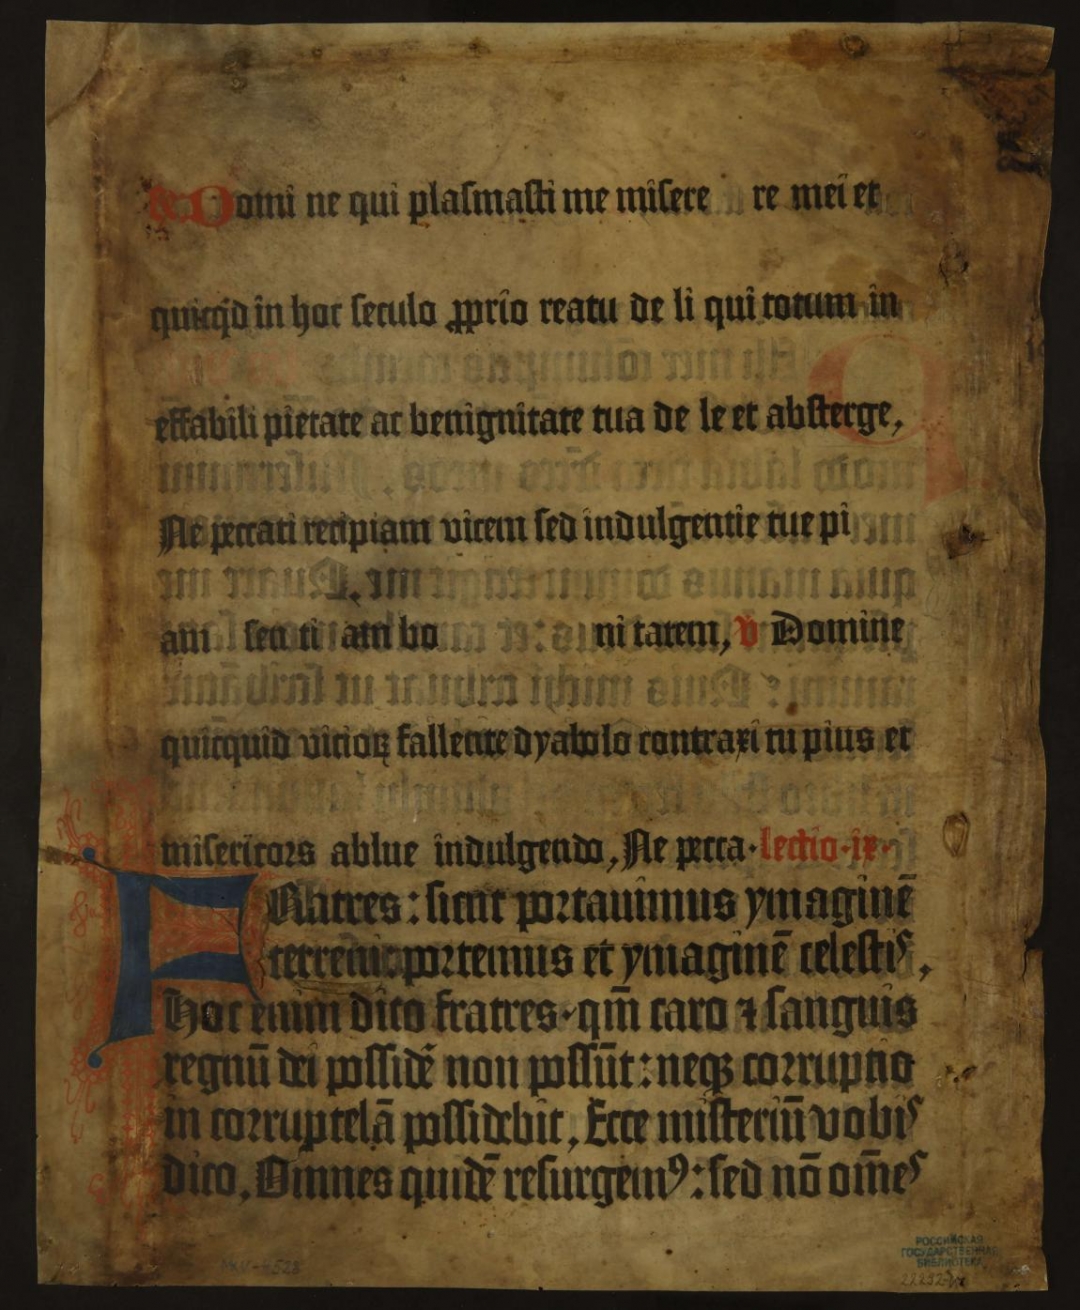 Domi ne qui plasmasti me misere re mei et
quicq̇d in hoc seculo ꝓprio reatu de li qui totum in
effabili pietate ac benignitate tua de le et absterge,
Ne peccati recipiam vicem sed indulgentie tue pi
am sen ti am bo ni tatem, v Domine
quicquid vicioꝝ fallente dyabolo contraxi tu pius et
misericors ablue indulgendo, Ne pecca· lectio·ix·
FRatres: sicut portauimus ymaginē
terreni: portemus et ymaginē celestis,
Hoc enim dico fratres· qm̄ caro ⁊ sanguis
regnū dei possidē non possūt: neqꝫ corruptio
in corruptelā possidebit, Ecce misteriū vobis
dico, Omnes quidē resurgemꝰ: sed nō om̄es
РОССИЙСКАЯ
ГОСУДАРСТВЕННАЯ
БИБЛИОТЕКА